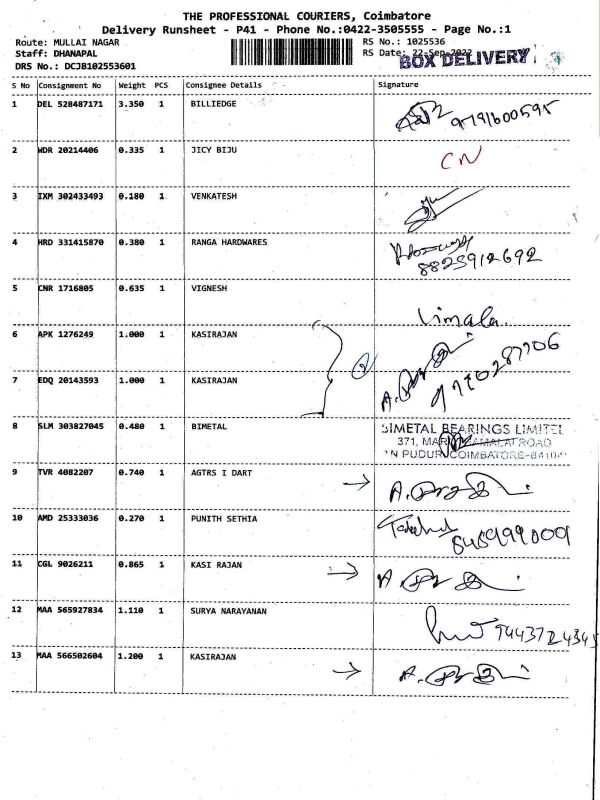 THE PROFESSIONAL COURIERS, Coimbatore
Delivery Runsheet - P41 - Phone No.:0422-3505555 - Page No.:1
Route: MULLAI NAGAR RS No.: 1025536
Staff: DHANAPAL RS Date: 22-Sep-2022
BOX DELIVERY
DRS No.: DCJB102553601
S No Consignment No Weight PCS Consignee Details Signature
1 DEL 528487171 3.350 1 BILLIEDGE 9791600595
2 WDR 20214406 0.335 1 JICY BIJU CN
3 IXM 302433493 0.180 1 VENKATESH
4 HRD 331415870 0.380 1 RANGA HARDWARES 8825912692
5 CNR 1716805 0.635 1 VIGNESH Vimala.
6 APK 1276249 1.000 1 KASIRAJAN
7 EDQ 20143593 1.000 1 KASIRAJAN
8 SLM 303827045 0.480 1 BIMETAL
BIMETAL BEARINGS LIMITED
371,
COIMBATORE-
9 TVR 4082207 0.740 1 AGTRS I DART
10 AMD 25333036 0.270 1 PUNITH SETHIA
11 CGL 9026211 0.865 1 KASI RAJAN
12 MAA 565927834 1.110 1 SURYA NARAYANAN
13 MAA 566502604 1.200 1 KASIRAJAN